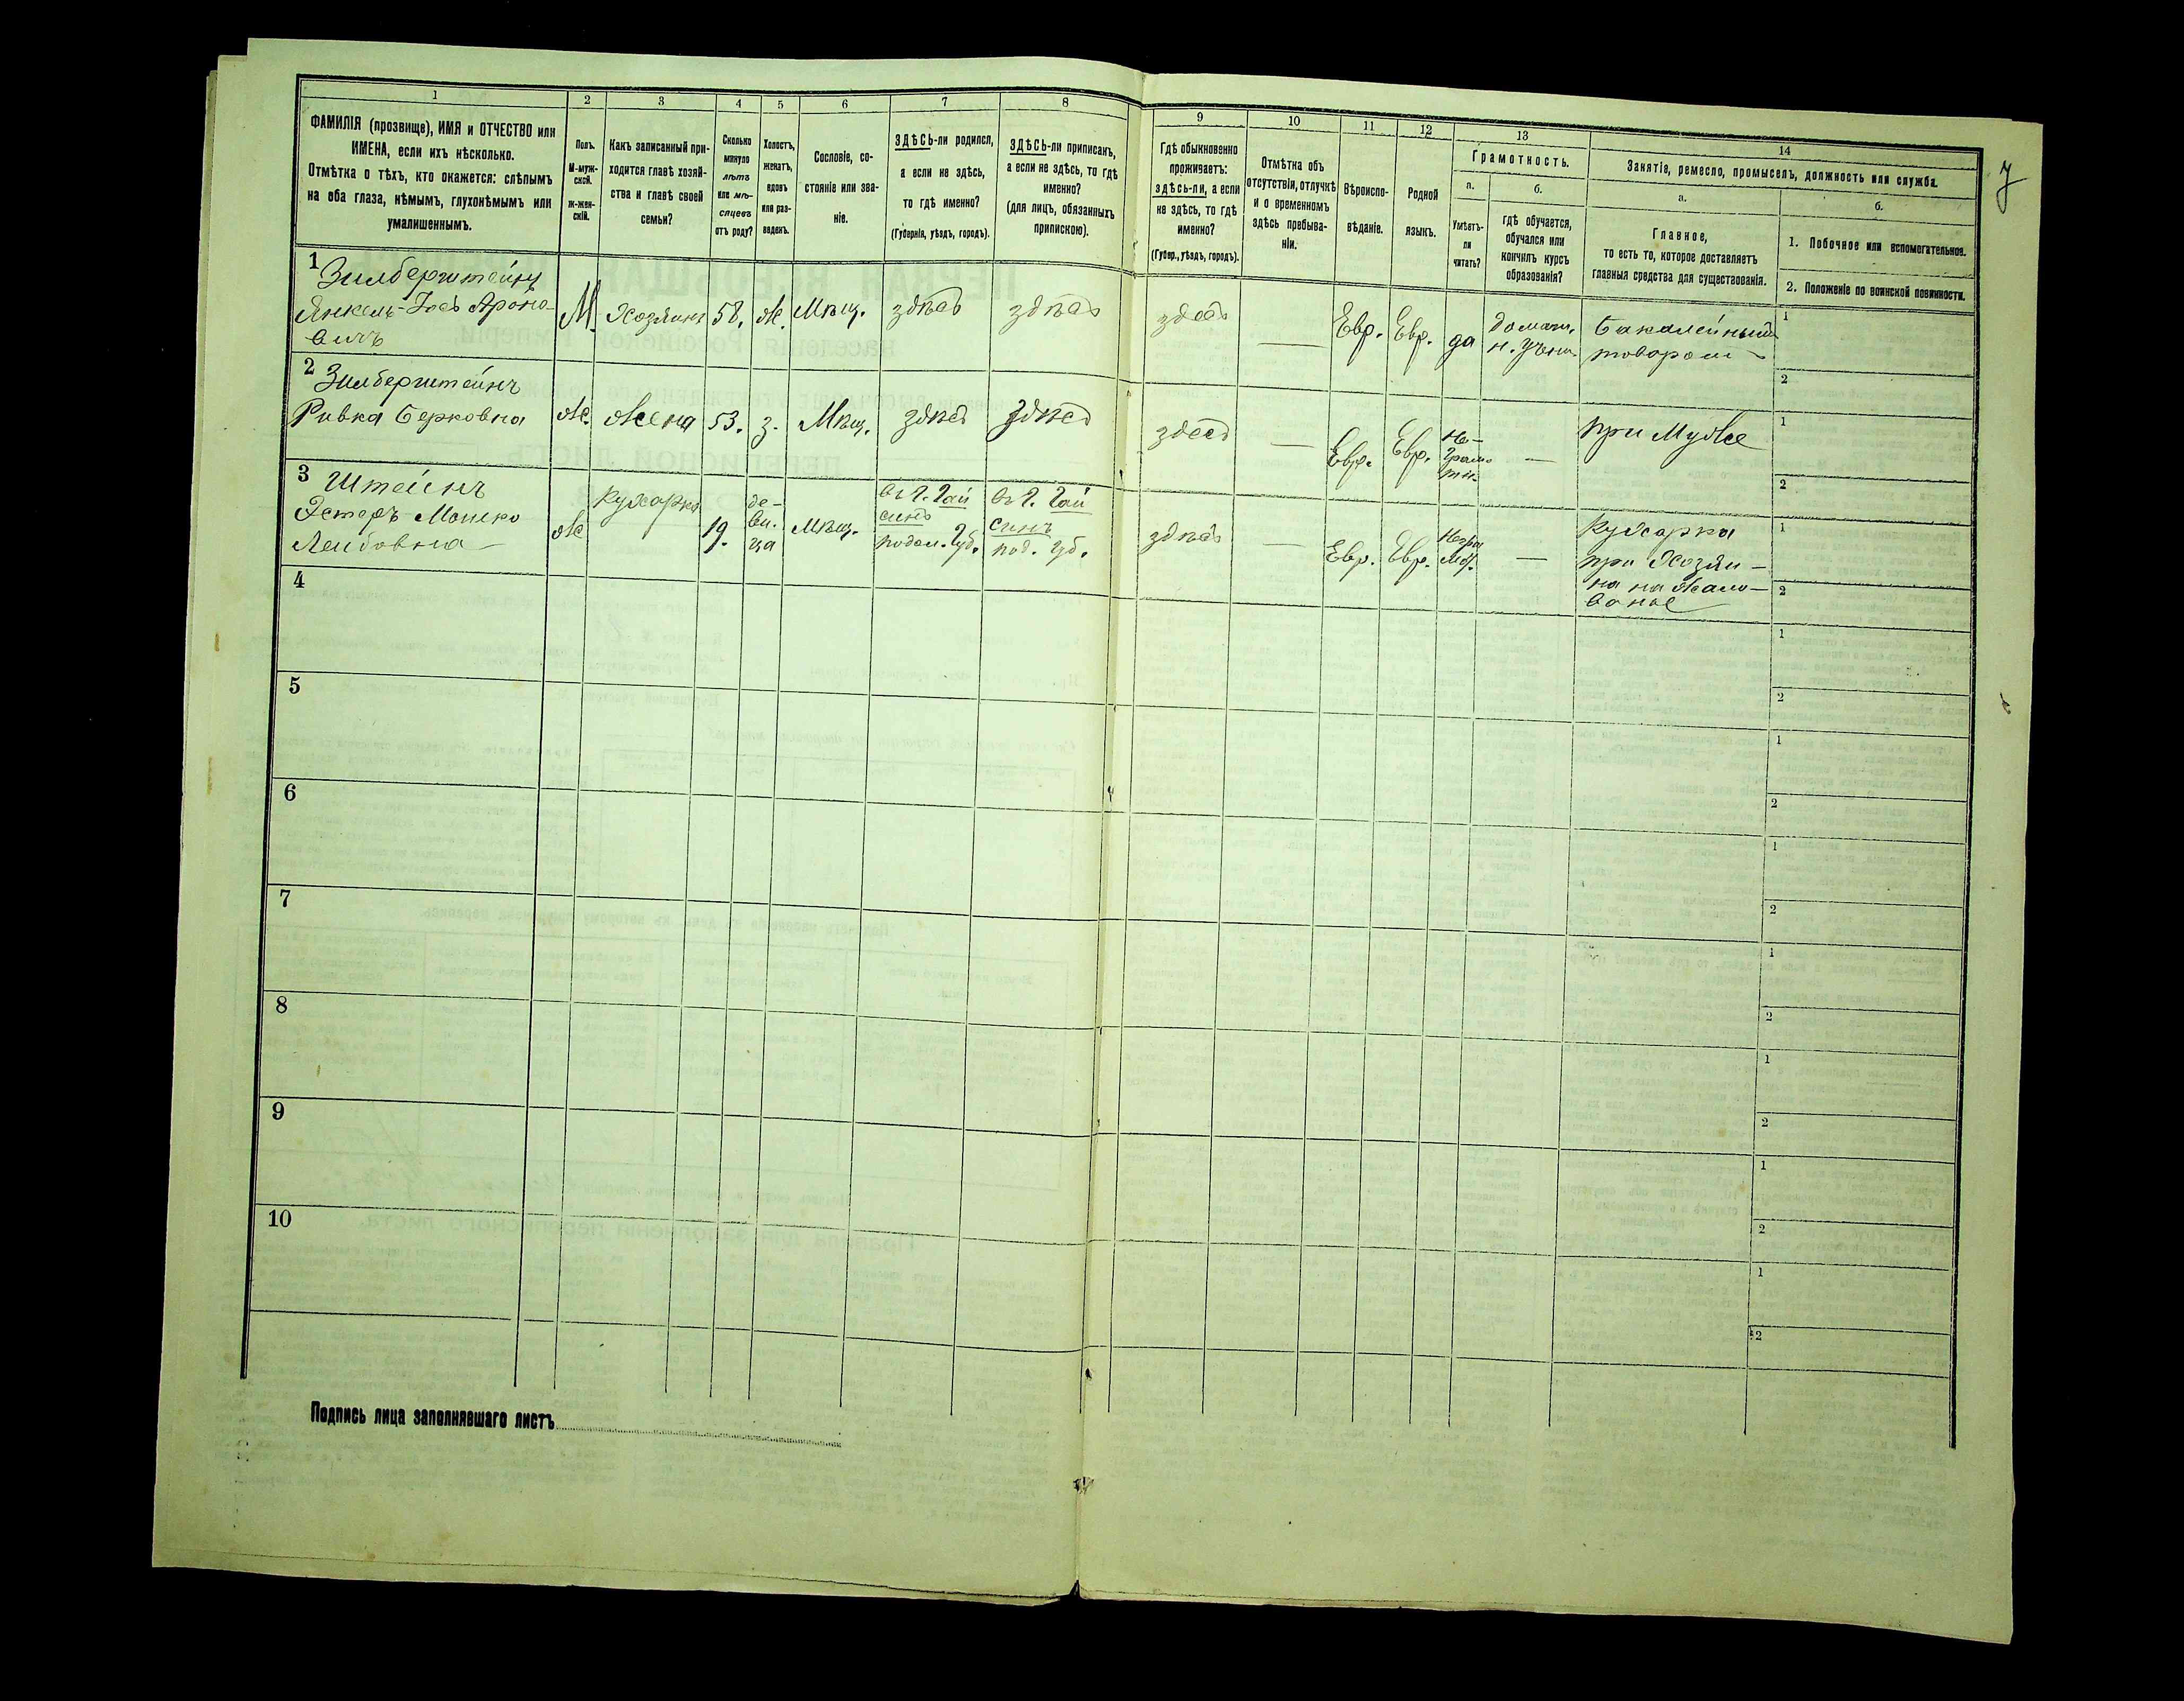 1 2 3 4 5 6 7 8 9 10 11 12 13 14
ФАМИЛІЯ (прозвище), ИМЯ и ОТЧЕСТВО или
ИМЕНА, если ихъ нѣсколько.
Отмѣтка о тѣхъ, кто окажется: слѣпымъ
на оба глаза, нѣмымъ, глухонѣмымъ или
умалишеннымъ.
Полъ.
М-муж-
ской.
Ж-жен-
скій.
Какъ записанный при-
ходится главѣ хозяй-
ства и главѣ своей
семьи?
Сколько
минуло
лѣтъ
или мѣ-
сяцевъ
отъ роду?
Холостъ,
женатъ,
вдовъ
или раз-
веденъ.
Сословіе, со-
стояніе или зва-
ніе.
ЗДѢСЬ-ли родился,
а если не здѣсь,
то гдѣ именно?
(Губернія, уѣздъ, городъ).
ЗДѢСЬ-ли приписанъ,
а если не здѣсь, то гдѣ
именно?
(для лицъ, обязанныхъ
припискою).
Гдѣ обыкновенно
проживаетъ:
здѣсь-ли, а если
не здѣсь, то гдѣ
именно?
(Губер., уѣздъ, городъ).
Отмѣтка объ
отсутствіи, отлучкѣ
и о временномъ
здѣсь пребыва-
ніи.
Вѣроиспо-
вѣданіе.
Родной
языкъ.
Грамотность.
а.
Умѣетъ-
ли
читать?
б.
гдѣ обучается,
обучался или
кончилъ курсъ
образованія?
Занятіе, ремесло, промыселъ, должность или служба.
а.
Главное,
то есть то, которое доставляетъ
главныя средства для существованія.
б.
1. Побочное или вспомогательное.
2. Положеніе по воинской повинности.
1 Зилберштейнъ
Янкель-Іось Ароно-
вичъ
М. Хозяинъ 58. Ж. Мѣщ. здѣсь здѣсь здесь — Евр. Евр. да
домаш.
Бакалейный
товаром
1
2
2 Зилберштейнъ
Ривка Берковна Ж. Жена 53. з. Мѣщ. здѣсь здѣсь здесь — Евр. Евр.
Не-
грам-
тн. —
при Муже
1
2
3 Штейнъ
Эстеръ Мошко
Лейбовна
Ж кухарка 19.
де-
ви-
ца
Мѣщ.
въ г. Гай
синѣ
подол. губ.
въ г. Гай
синѣ
под. губ.
здѣсь — Евр. Евр.
Негра
мот. —
кухарка
при Хозяи-
на на жало-
ванье
1
2
4
1
2
5
1
2
6
1
2
7
1
2
8
1
2
9
1
2
10
1
2
Подпись лица заполнявшаго листъ